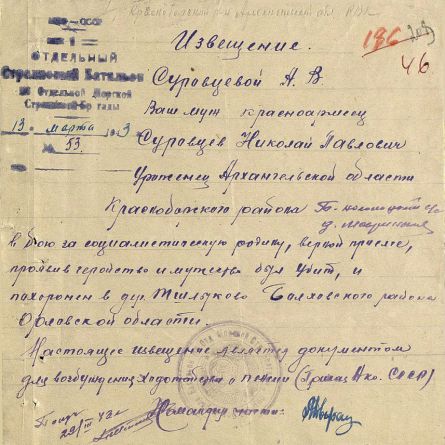 Извещение.
НКО-СССР
1
ОТДЕЛЬНЫЙ
Стрелковый Батальон
Отдельной Морской
Стрелковой Бригады
13 марта 1943
№ 53.
186
46
Суровцевой А. В.
Ваш муж красноармеец
Суровцев Николай Павлович
Уроженец Архангельской области
Красноборского района
д.
в бою за социалистическую родину, верной присяге,
проявив геройство и мужество был убит, и
похоронен в дер. Жиляково Болховского района
Орловской области.
Настоящее извещение является документом
для возбуждения ходатайства о пенсии (Приказ НКО. СССР)
Командир части: